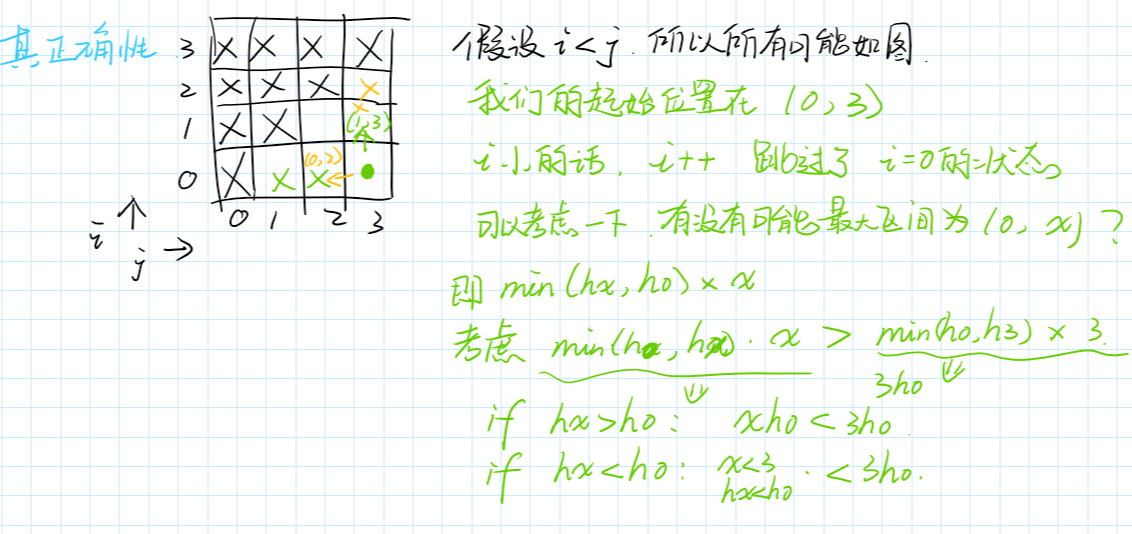 其正确性
3 X X X X
2 X X X X
1 X X X (1,3)
0 X X (0,2) X
0 1 2 3
i
j
假设 i<j. 所以所有可能如图.
我们的起始位置在 (0,3)
i小的话, i++ 跳过了 i=0的状态。
可以考虑一下, 有没有可能最大区间为 (0, x) ?
即 min(hx, h0) × x
考虑 min(h0, hx) · x > min(h0, h3) × 3.
3h0
if hx>h0: xh0 < 3h0.
if hx<h0: x<3 · < 3h0.
hx<h0